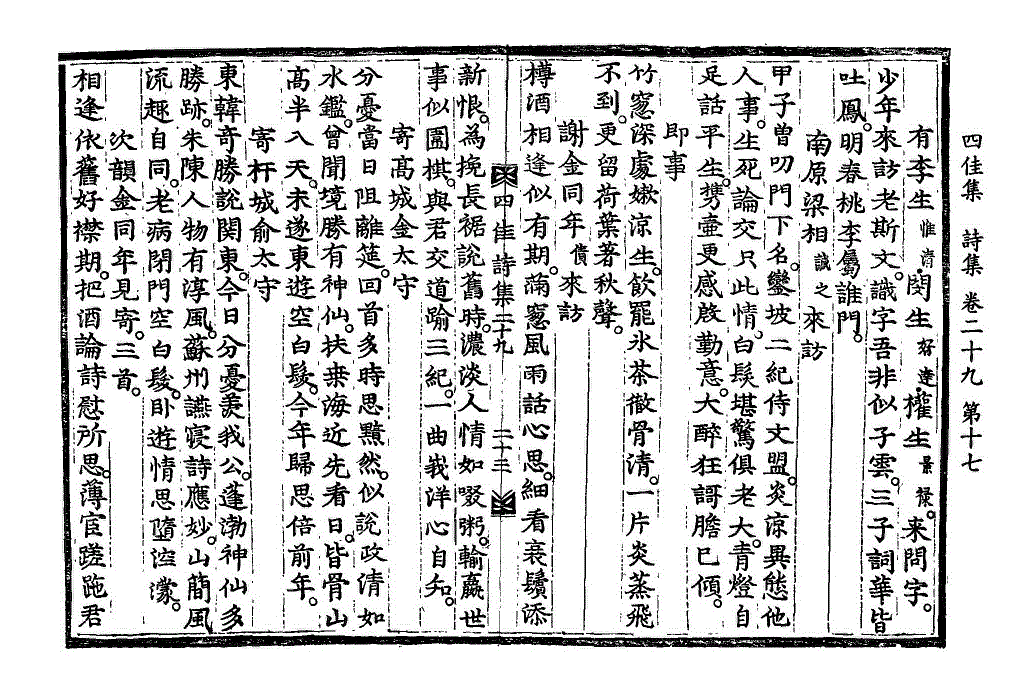 四佳集　詩集　卷二十九　第十七
有李生惟淸。閔生好達。權生景祿。來問字。
少年來訪老斯文。識字吾非似子雲。三子詞華皆
吐鳳。明春桃李屬誰門。
南原梁相誠之來訪
甲子曾叨門下名。鑾坡二紀侍文盟。炎涼異態他
人事。生死論交只此情。白髮堪驚俱老大。靑燈自
足話平生。携壺更感慇勤意。大醉狂謌膽已傾。
卽事
竹窓深處嫩涼生。飮罷氷茶徹骨淸。一片炎蒸飛
不到。更留荷葉著秋聲。
謝金同年僨來訪
樽酒相逢似有期。滿窓風雨話心思。細看衰鬢添
四佳詩集二十九　二十三
新恨。爲挽長裾說舊時。濃淡人情如啜粥。輸嬴世
事似圍棋。與君交道踰三紀。一曲峩洋心自知。
寄高城金太守
分憂當日阻離筵。回首多時思黯然。似說政淸如
水鑑。曾聞境勝有神仙。扶桑海近先看日。皆骨山
高半入天。未遂東遊空白髮。今年歸思倍前年。
寄杆城俞太守
東韓奇勝說關東。今日分憂羨我公。蓬渤神仙多
勝跡。朱陳人物有淳風。蘇州讌寢詩應妙。山簡風
流趣自同。老病閉門空白髮。臥遊情思墮涳濛。
次韻金同年見寄。三首。
相逢依舊好襟期。把酒論詩慰所思。薄宦蹉跎君